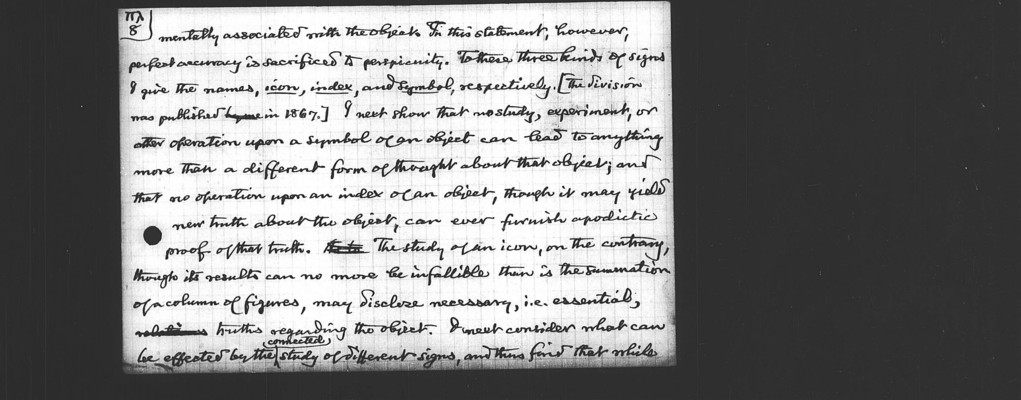 πλ
8
mentally associated with the object. In this statement, however,
perfect accuracy is sacrificed to perspicuity. To these three kinds of signs
I give the names, icon, index, and symbol, respectively. [The division
was published by me in 1867.] I next show that no study, experiment, or
other operation upon a symbol of an object can lead to anything
more than a different form of thought about that object; and
that no operation upon an index of an object, though it may yield
new truth about the object, can ever furnish apodictic
proof of that truth. The study of an icon, on the contrary,
though its results can no more be infallible than is the summation
of a column of figures, may disclose necessary, i.e. essential,
truths regarding the object. I next consider what can
be effected by the connected study of different signs, and thus find that while